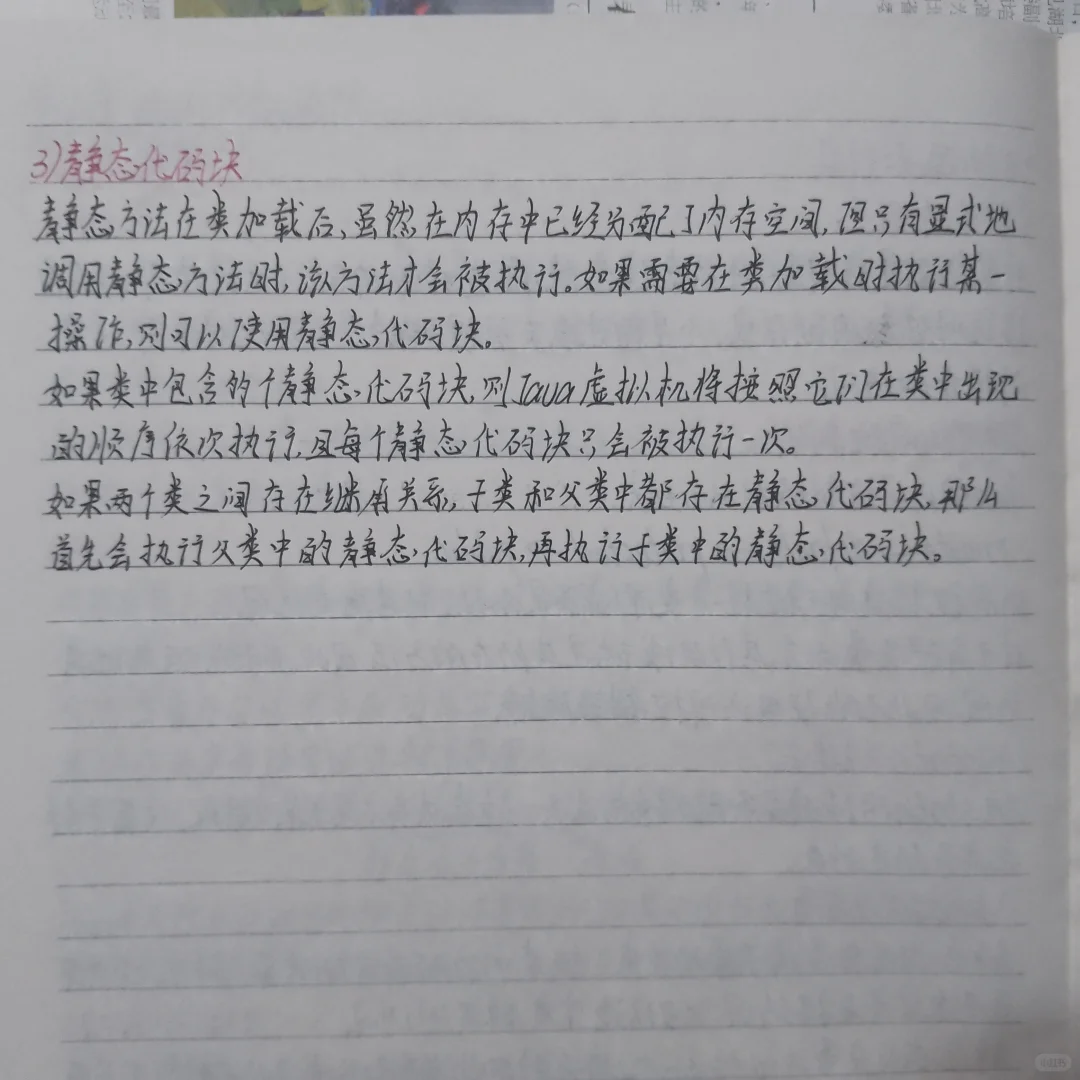 3)静态代码块
静态方法在类加载后,虽然在内存中已经分配了内存空间,但只有显式地
调用静态方法时,该方法才会被执行。如果需要在类加载时执行某一
操作,则可以使用静态代码块。
如果类中包含多个静态代码块,则Java虚拟机将按照它们在类中出现
的顺序依次执行,且每个静态代码块只会被执行一次。
如果两个类之间存在继承关系,子类和父类中都存在静态代码块,那么
首先会执行父类中的静态代码块,再执行子类中的静态代码块。
小红书